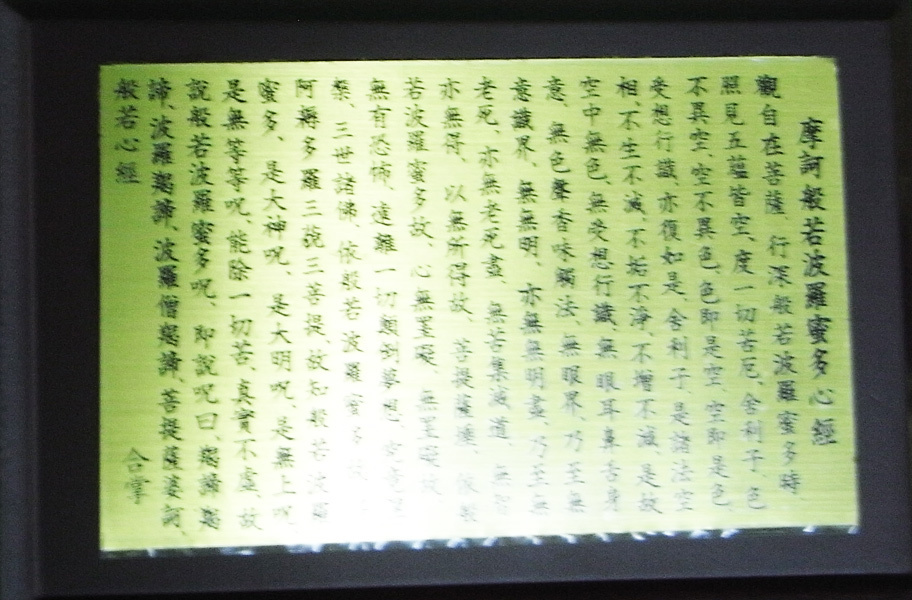 摩訶般若波羅蜜多心經
觀自在菩薩、行深般若波羅蜜多時、
照見五蘊皆空、度一切苦厄、舍利子、色
不異空、空不異色、色即是空、空即是色、
受想行識、亦復如是、舍利子、是諸法空
相、不生不滅、不垢不淨、不增不減、是故
空中無色、無受想行識、無眼耳鼻舌身
意、無色聲香味觸法、無眼界、乃至無
意識界、無無明、亦無無明盡、乃至無
老死、亦無老死盡、無苦集滅道、無智
亦無得、以無所得故、菩提薩埵、依般
若波羅蜜多故、心無罣礙、無罣礙故、
無有恐怖、遠離一切顛倒夢想、
槃、三世諸佛、依般若波羅蜜多
阿耨多羅三藐三菩提、故知般若波羅
蜜多、是大神呪、是大明呪、是無上呪、
是無等等呪、能除一切苦、真實不虛、故
說般若波羅蜜多呪、即說呪曰、揭諦揭
諦、波羅揭諦、波羅僧揭諦、菩提薩婆訶、
般若心經
合掌